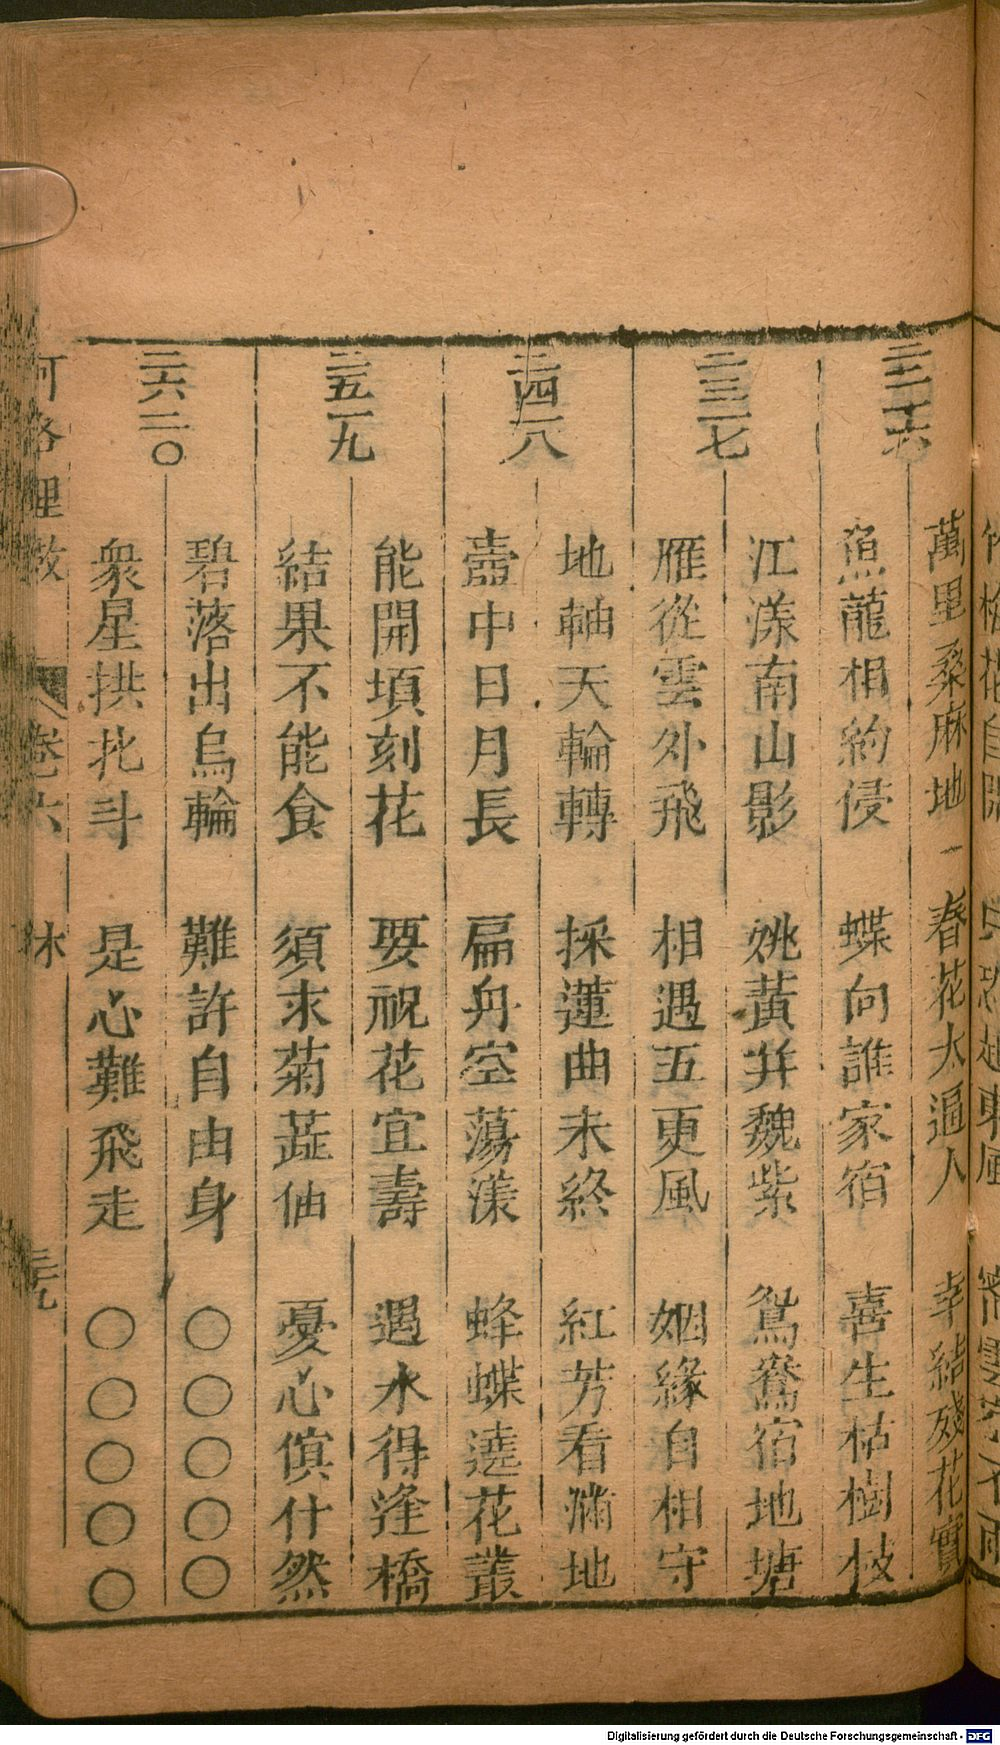 二二一六
萬里桑麻地 一春花太過人 幸結殘花實
魚龍相約侵 蝶向誰家宿 喜生枯樹枝
二三一七
江漾南山影 姚黃并魏紫 鴛鴦宿地塘
雁從雲外飛 相遇五更風 姻緣自相守
二四一八
地軸天輪轉 採蓮曲未終 紅芳看滿地
壼中日月長 扁舟空蕩漾 蜂蝶遶花叢
二五一九
能開頃刻花 要祝花宜壽 遇水得逢橋
結果不能食 須求菊蕋仙 憂心慎什然
二六二〇
碧落出烏輪 難許自由身 〇〇〇〇〇
衆星拱北斗 是心難飛走 〇〇〇〇〇
河洛理數 卷六 木 三九
Digitalisierung gefördert durch die Deutsche Forschungsgemeinschaft - DFG